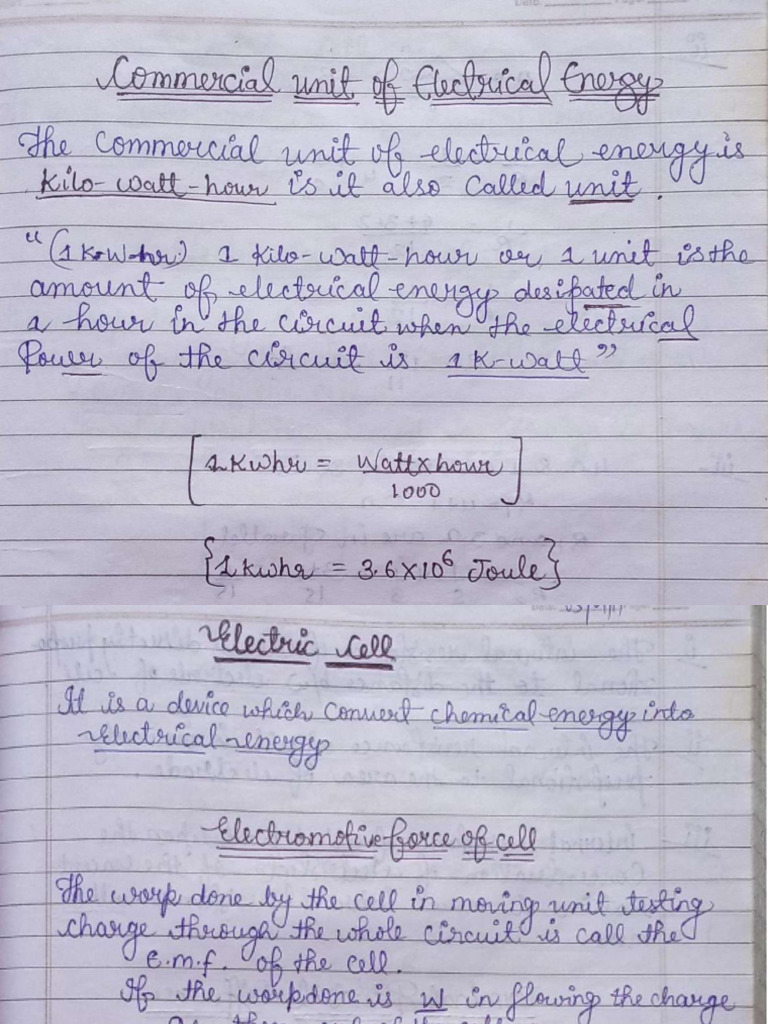 Commercial unit of Electrical Energy
The commercial unit of electrical energy is
Kilo-watt-hour is it also called unit.
"(1 K-W-hr.) 1 Kilo-watt-hour or 1 unit is the
amount of electrical energy desipated in
1 hour in the circuit when the electrical
Power of the circuit is 1 K-watt"
[1 Kwhr = Watt×hour
1000]
{1 kwhr = 3.6×10⁶ Joule}
Electric Cell
It is a device which convert chemical energy into
Electrical energy
Electromotive force of cell
The work done by the cell in moving unit testing
charge through the whole circuit is call the
E.m.f. of the cell.
If the workdone is W in flowing the charge